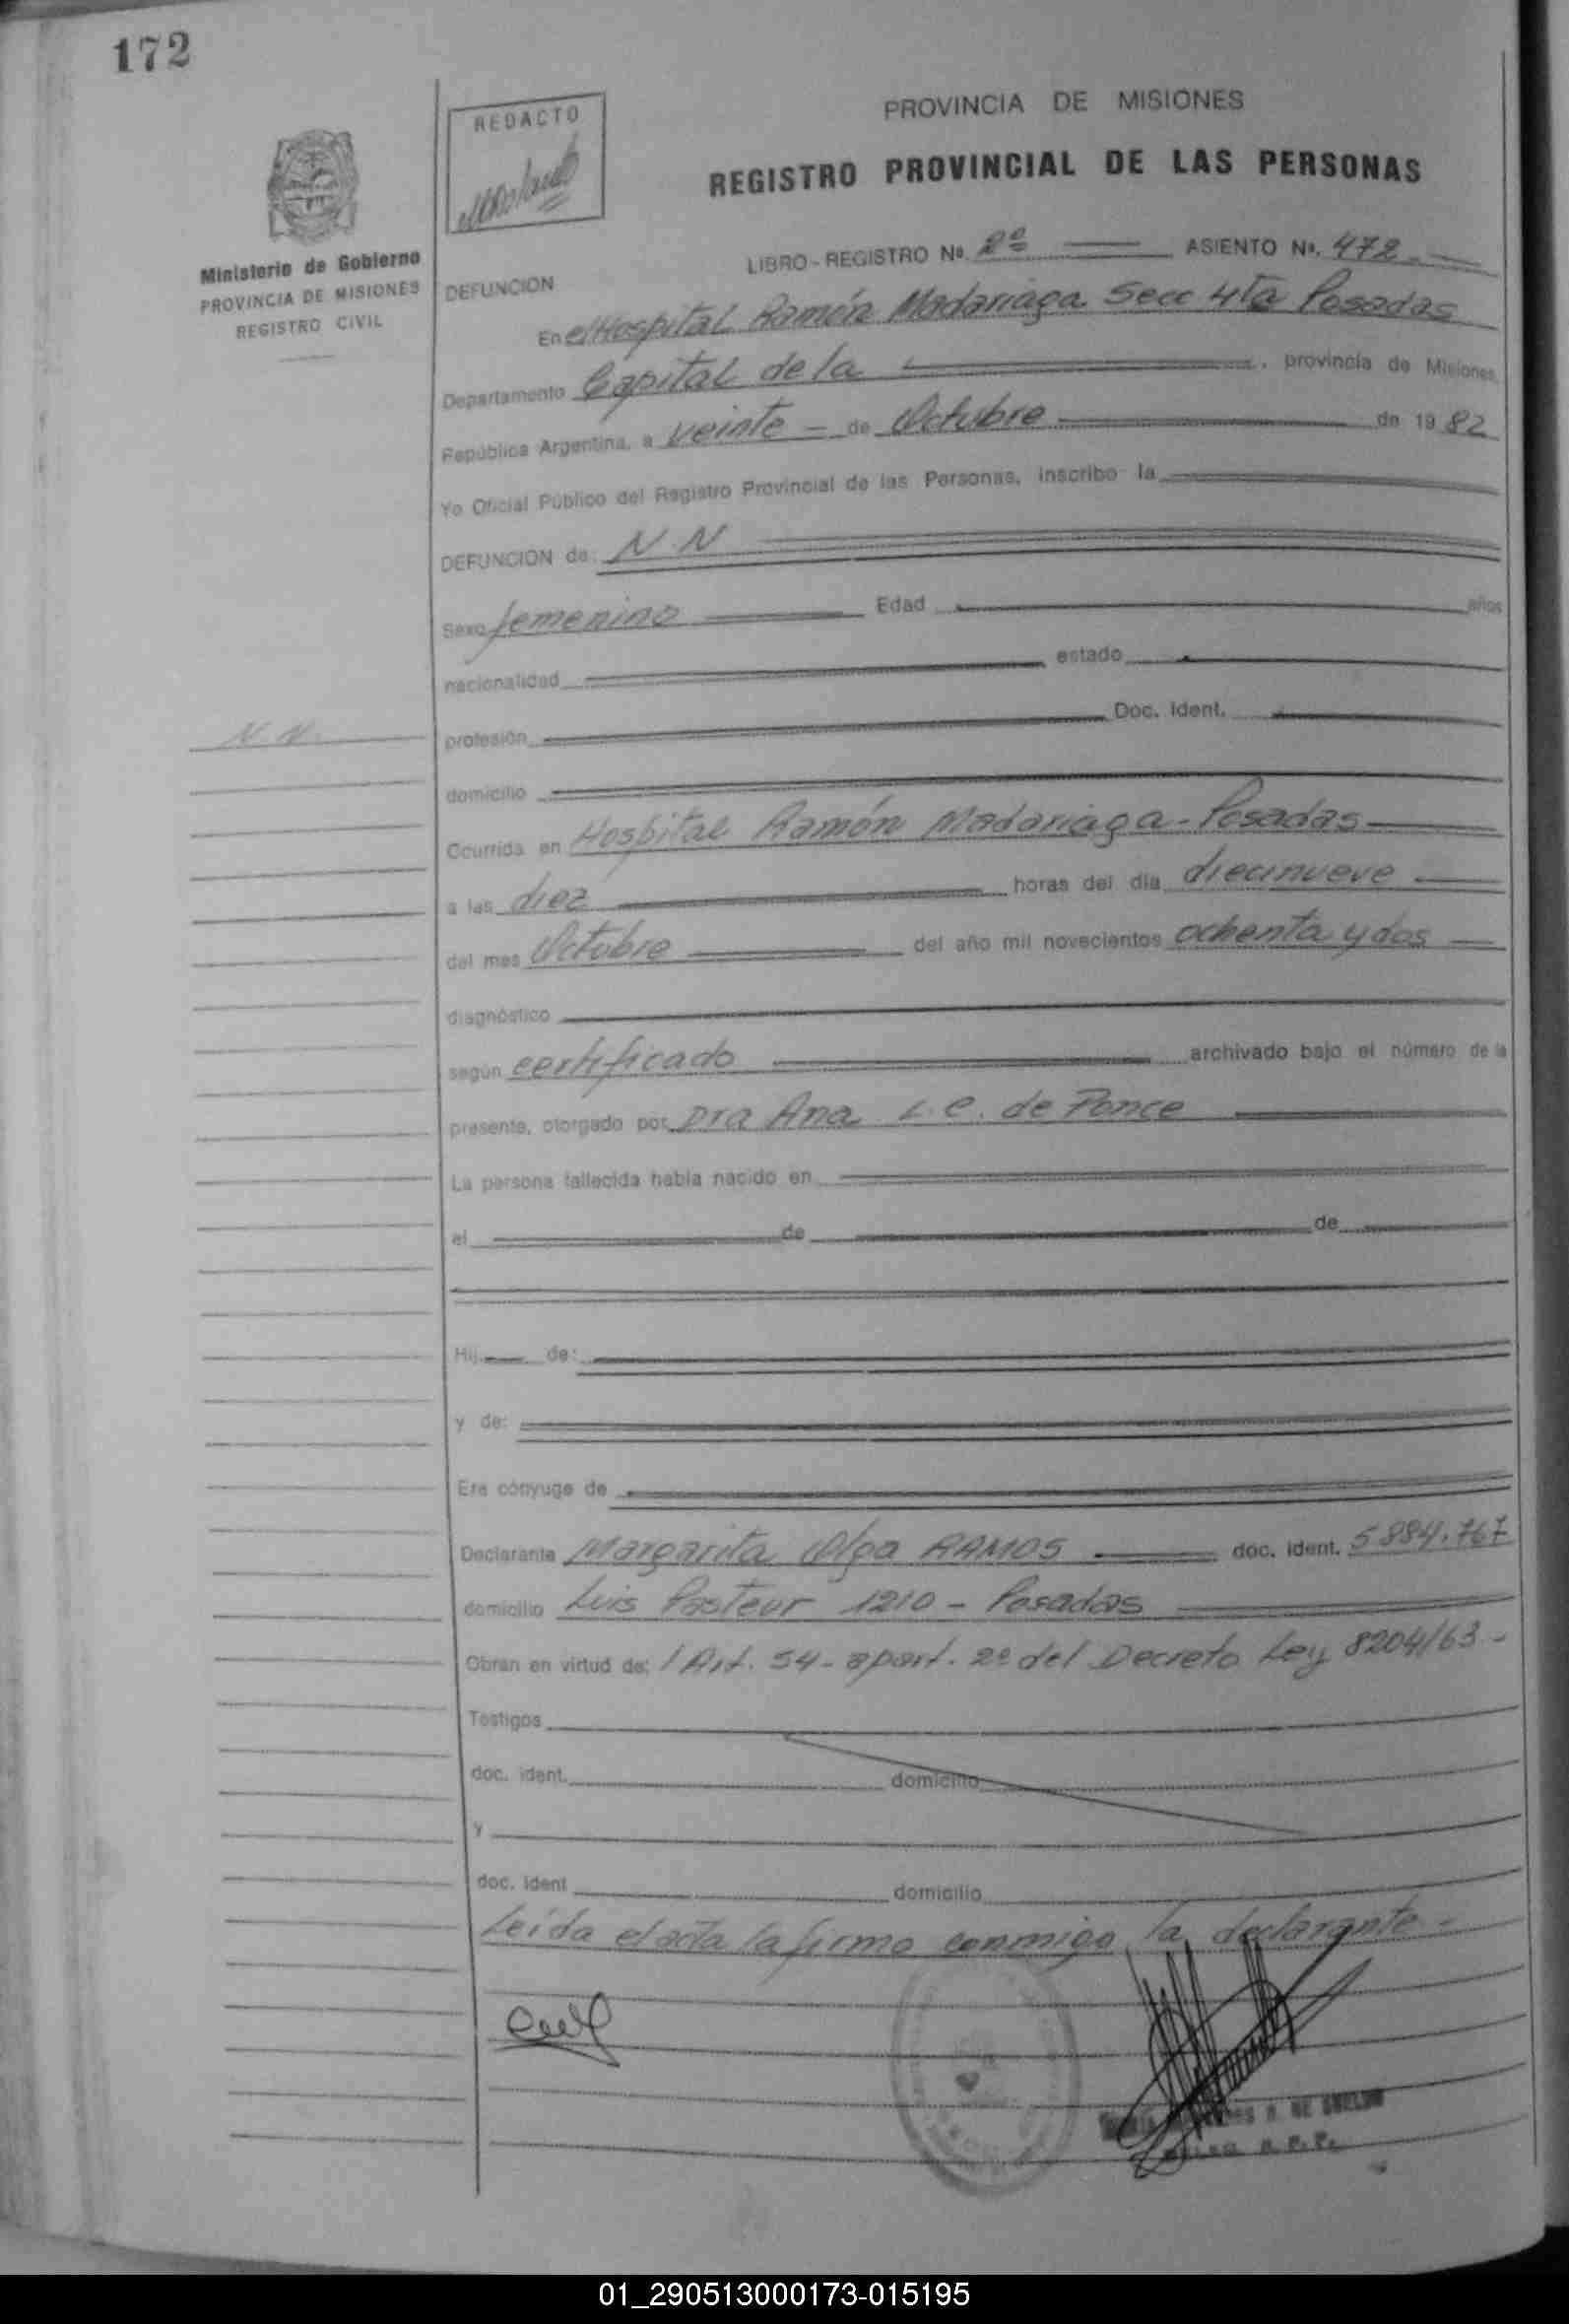 172
REDACTO
PROVINCIA DE MISIONES
REGISTRO PROVINCIAL DE LAS PERSONAS
Ministerio de Gobierno
PROVINCIA DE MISIONES
REGISTRO CIVIL
LIBRO-REGISTRO Nº. 2º ASIENTO Nº. 472
DEFUNCION
En el Hospital Ramón Madariaga Secc 4ta Posadas
Departamento Capital de la , provincia de Misiones,
República Argentina, a veinte - de Octubre de 1982
Yo Oficial Público del Registro Provincial de las Personas, inscribo la
DEFUNCION de: N.N
Sexo femenino Edad años
nacionalidad estado
N.N.
profesión Doc. Ident.
domicilio
Ocurrida en Hospital Ramón Madariaga - Posadas
a las diez horas del día diecinueve
del mes Octubre del año mil novecientos ochenta y dos
diagnóstico
según certificado archivado bajo el número de la
presente, otorgado por Dra Ana L.C. de Ponce
La persona fallecida había nacido en
el de de
Hij de:
y de:
Era cónyuge de
Declarante Margarita Olga RAMOS doc. ident. 5884.767
domicilio Luis Pasteur 1210 - Posadas
Obran en virtud de: / Art. 54 - apart. 2º del Decreto Ley 8204/63 -
Testigos
doc. ident. domicilio
y
doc. ident domicilio
Leída el acta la firma conmigo la declarante -
01_290513000173-015195